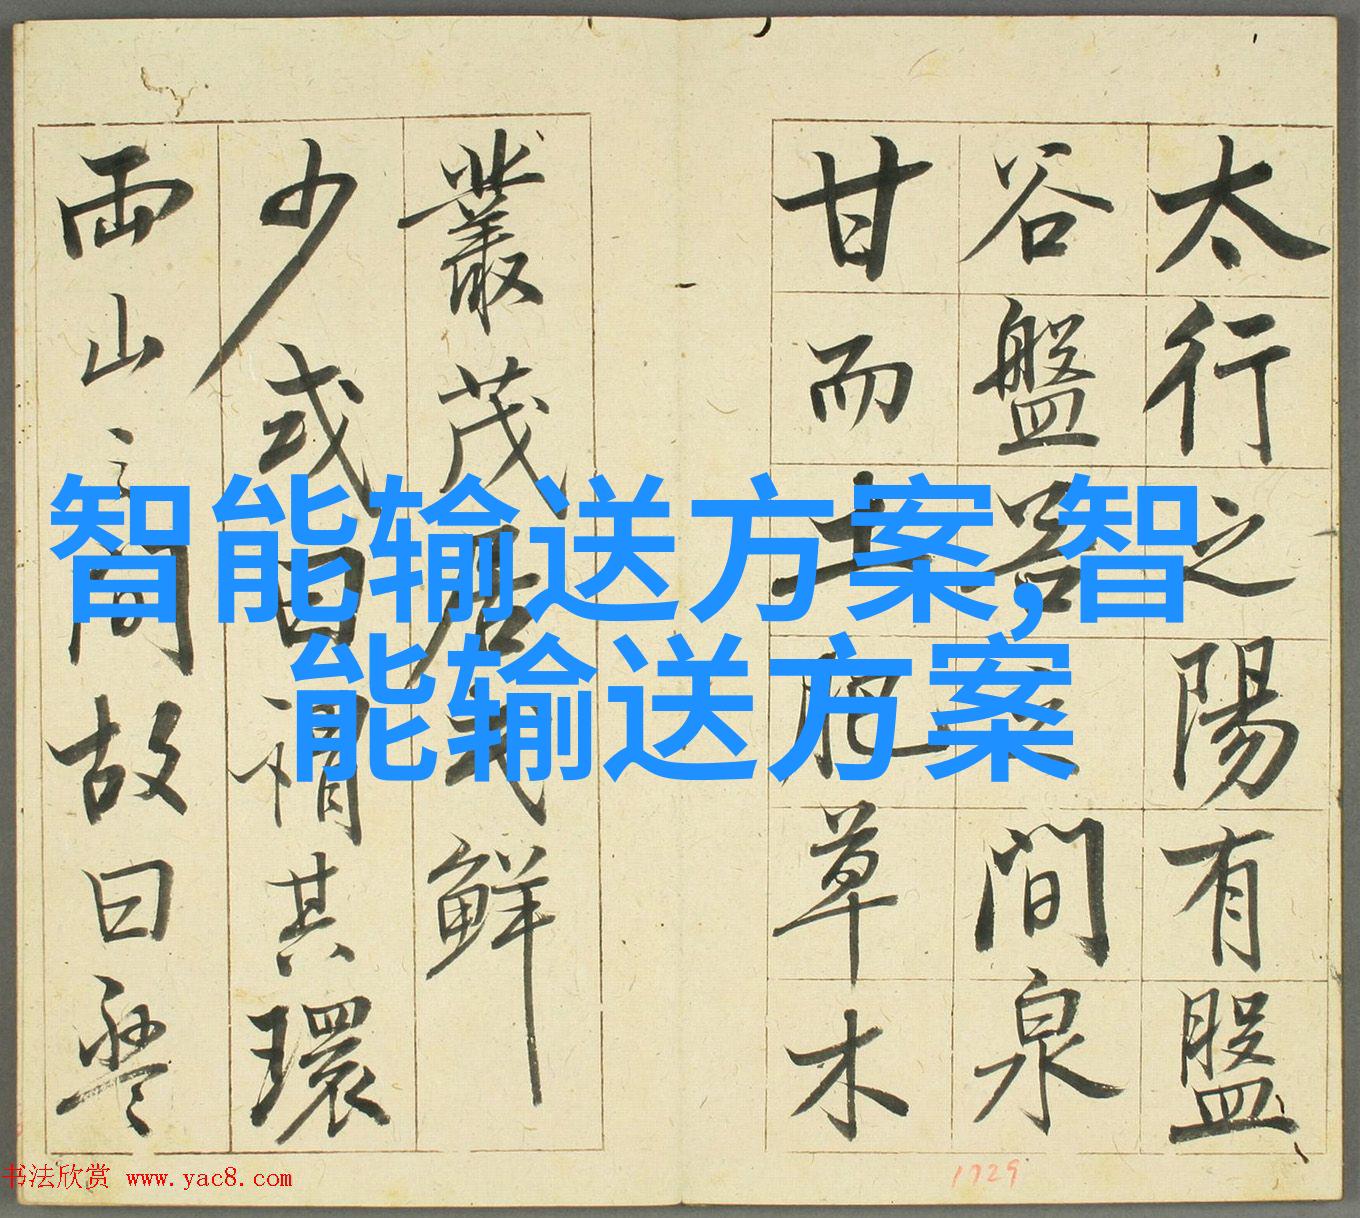 太行之陽有盤
谷盤谷之間泉
甘而土肥草木
叢茂居民鮮
少或曰謂其環
兩山之間故曰盤
智能输送方案,智
能输送方案
书法欣赏 www.yac8.com
1729